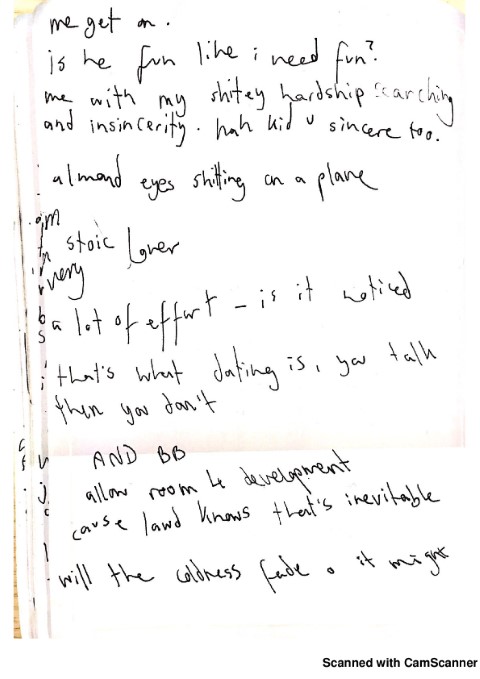 me get on.
is he fun like i need fun?
me with my shitey hardship searching
and insincerity. hah kid u sincere too.
almond eyes shitting on a plane
stoic lover
very
a lot of effort - is it noticed
that's what dating is, you talk
then you don't
AND BB
allow room 4 development
cause lawd knows that's inevitable
will the coldness fade. it might
Scanned with CamScanner